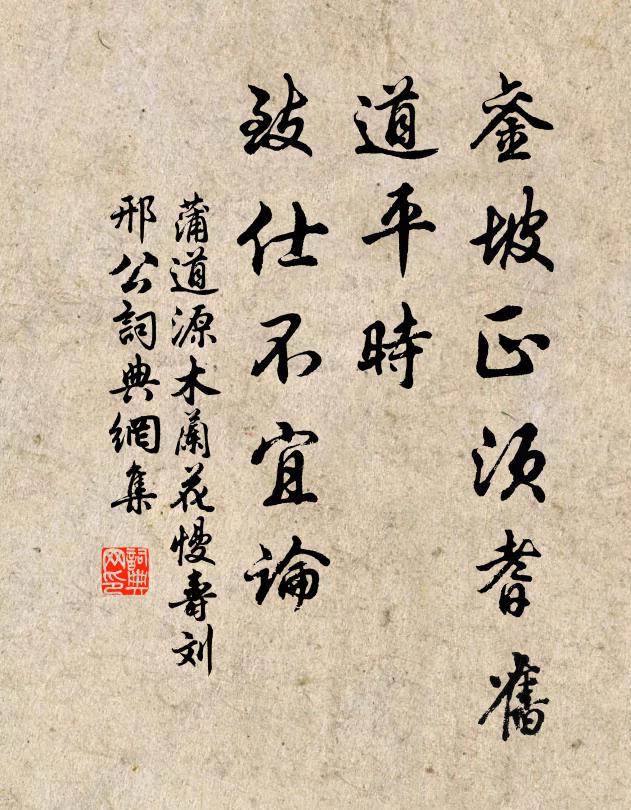 銮坡正须耆舊
道平時
致仕不宜論
蒲道源木蘭花慢壽刘
邢公詞典網集
詞典网印